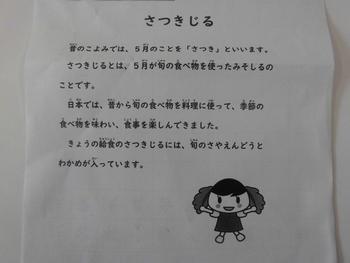 さつきじる
昔のこよみでは、５月のことを「さつき」といいます。
さつきじるとは、５月が旬の食べ物を使ったみそしるの
ことです。
日本では、昔から旬の食べ物を料理に使って、季節の
食べ物を味わい、食事を楽しんできました。
きょうの給食のさつきじるには、旬のさやえんどうと
わかめが入っています。